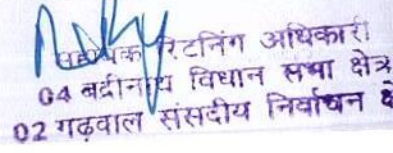 सहायक रिटर्निंग अधिकारी
04 बद्रीनाथ विधान सभा क्षेत्र
02 गढ़वाल संसदीय निर्वाचन